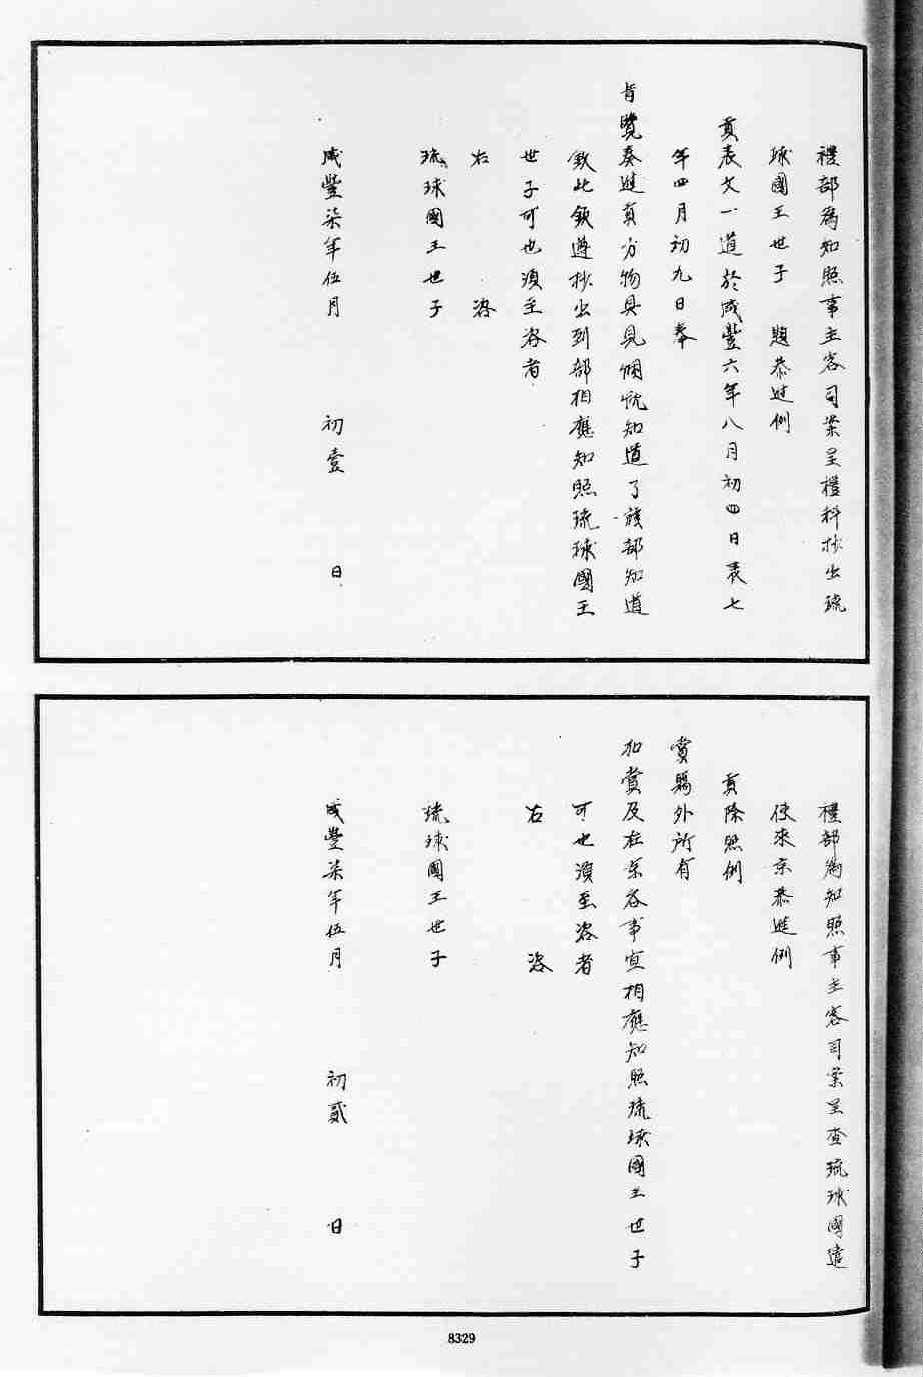 禮部為知照事主客司案呈禮科抄出琉
球國王世子 題恭進例
貢表文一道於咸豐六年八月初四日表七
年四月初九日奉
旨覽奏進貢方物具見悃忱知道了該部知道
欽此欽遵抄出到部相應知照琉球國王
世子可也須至咨者
右 咨
琉球國王世子
咸豐柒年伍月 初壹 日
禮部為知照事主客司案呈查琉球國遣
使來京恭進例
貢除照例
賞賜外所有
加賞及在京各事宜相應知照琉球國王世子
可也須至咨者
右 咨
琉球國王世子
咸豐柒年伍月 初貳 日
8329